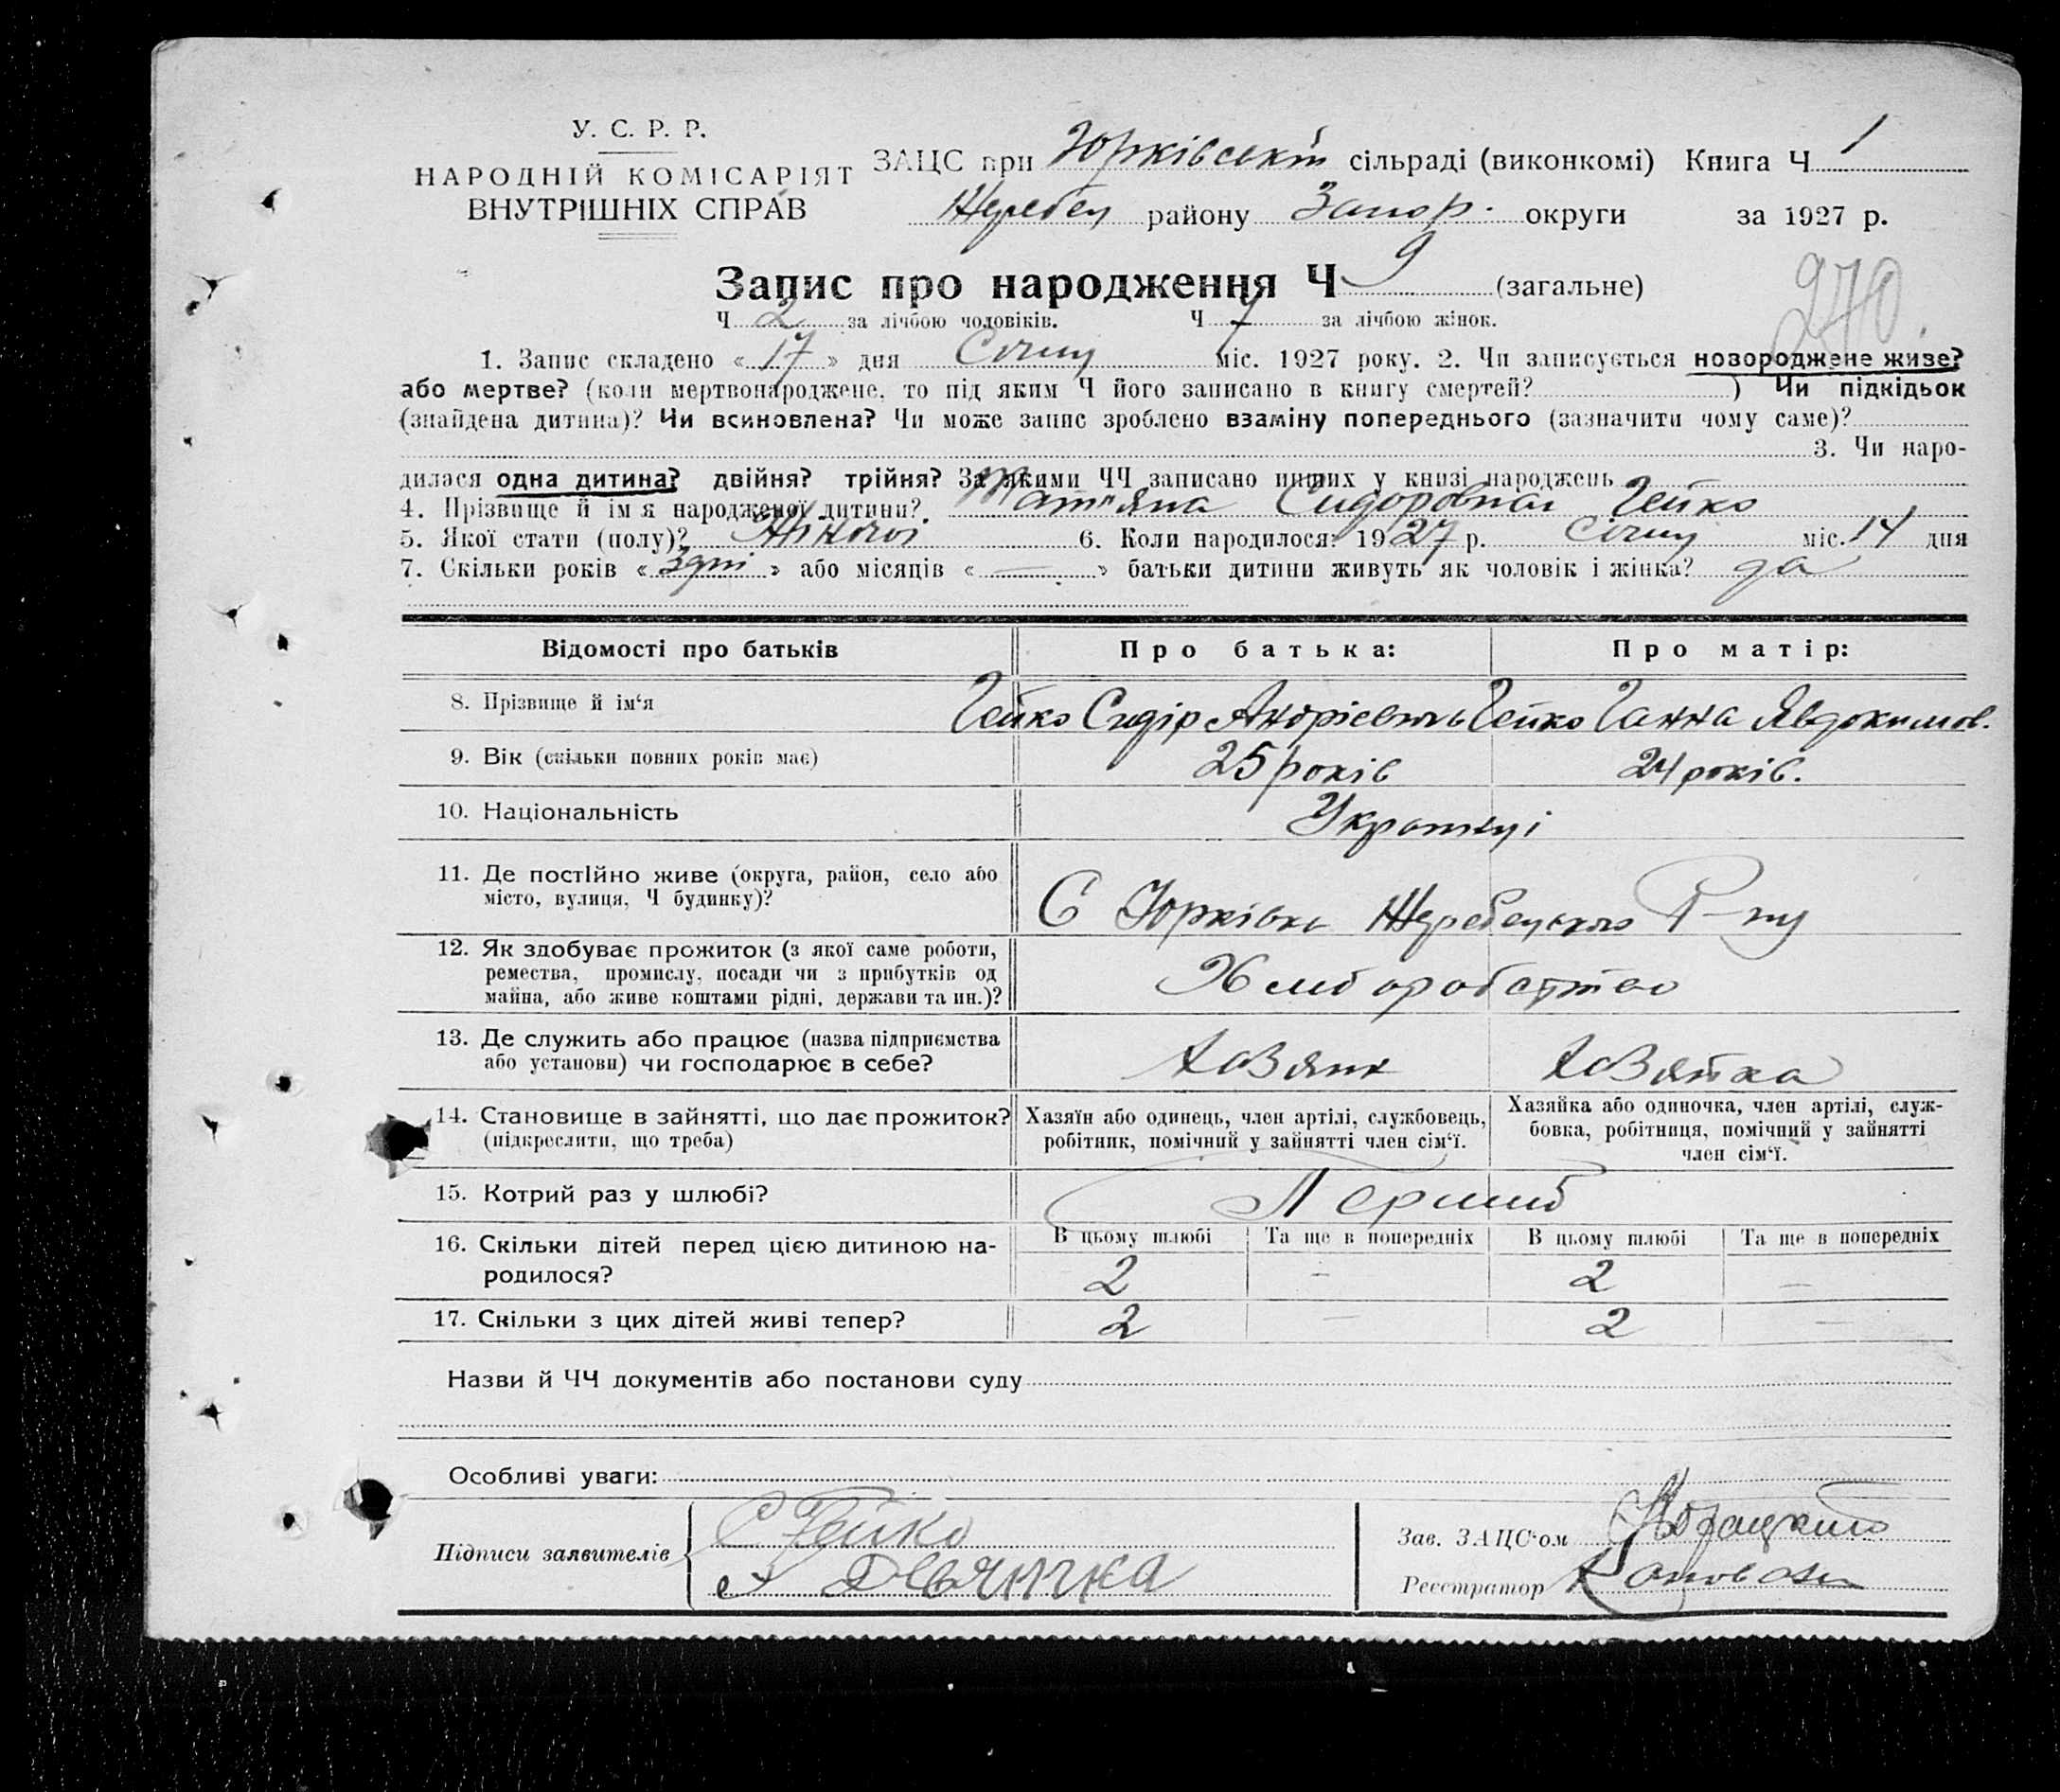 У. С. Р. Р.
НАРОДНІЙ КОМІСАРІЯТ
ВНУТРІШНІХ СПРАВ
ЗАЦС при Юрківській сільраді (виконкомі) Книга Ч 1
Жеребец району Запор. округи за 1927 р.
Запис про народження Ч 9 (загальне)
270
Ч 2 за лічбою чоловіків. Ч 7 за лічбою жінок.
1. Запис складено «17» дня Січня міс. 1927 року. 2. Чи записується новороджене живе?
або мертве? (коли мертвонароджене, то під яким Ч його записано в книгу смертей? ) Чи підкідьок
(знайдена дитина)? Чи всиновлена? Чи може запис зроблено взаміну попереднього (зазначити чому саме)?
3. Чи наро-
дилася одна дитина? двійня? трійня? За якими ЧЧ записано інших у книзі народжень
4. Прізвище й ім'я народженої дитини? Тат'яна Сидоровна Гейко
5. Якої стати (полу)? Жіночої 6. Коли народилося: 1927 р. Січня міс. 14 дня
7. Скільки років «3 дні» або місяців «—» батьки дитини живуть як чоловік і жінка? да
Відомості про батьків Про батька: Про матір:
8. Прізвище й ім'я Гейко Сидір Андрієвичь Гейко Ганна Явдокимов.
9. Вік (скільки повних років має) 25 років 24 років.
10. Національність Українці
11. Де постійно живе (округа, район, село або
місто, вулиця, Ч будинку)?
С Юрківка Жеребецького Р-ну
12. Як здобуває прожиток (з якої саме роботи,
ремества, промислу, посади чи з прибутків од
майна, або живе коштами рідні, держави та ин.)?
Хлиборобство
13. Де служить або працює (назва підприємства
або установи) чи господарює в себе?
Хозяин Хозяйка
14. Становище в зайнятті, що дає прожиток?
(підкреслити, що треба)
Хазяїн або одинець, член артілі, службовець,
робітник, помічний у зайнятті член сім'ї.
Хазяйка або одиночка, член артілі, служ-
бовка, робітниця, помічний у зайнятті
член сім'ї.
15. Котрий раз у шлюбі? Перший
16. Скільки дітей перед цією дитиною на-
родилося?
В цьому шлюбі Та ще в попередніх В цьому шлюбі Та ще в попередніх
2 – 2 –
17. Скільки з цих дітей живі тепер? 2 – 2 –
Назви й ЧЧ документів або постанови суду
Особливі уваги:
Підписи заявителів
С Гейко
Зав. ЗАЦС'ом
Реєстратор